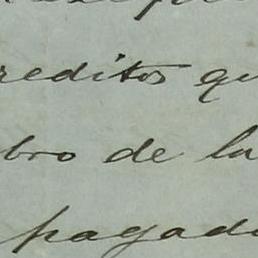 reditos qu
bro de la
pagad